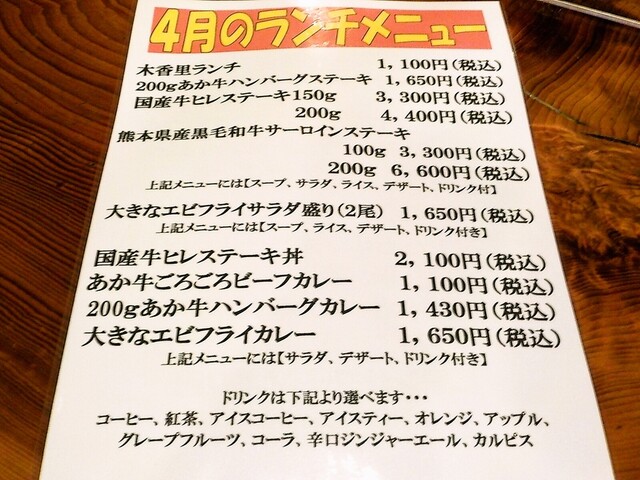 4月のランチメニュー
木香里ランチ 1,100円(税込)
200gあか牛ハンバーグステーキ 1,650円(税込)
国産牛ヒレステーキ150g 3,300円(税込)
200g 4,400円(税込)
熊本県産黒毛和牛サーロインステーキ
100g 3,300円(税込)
200g 6,600円(税込)
上記メニューには【スープ、サラダ、ライス、デザート、ドリンク付】
大きなエビフライサラダ盛り(2尾) 1,650円(税込)
上記メニューには【スープ、ライス、デザート、ドリンク付き】
国産牛ヒレステーキ丼 2,100円(税込)
あか牛ごろごろビーフカレー 1,100円(税込)
200gあか牛ハンバーグカレー 1,430円(税込)
大きなエビフライカレー 1,650円(税込)
上記メニューには【サラダ、デザート、ドリンク付き】
ドリンクは下記より選べます・・・
コーヒー、紅茶、アイスコーヒー、アイスティー、オレンジ、アップル、
グレープフルーツ、コーラ、辛口ジンジャーエール、カルピス